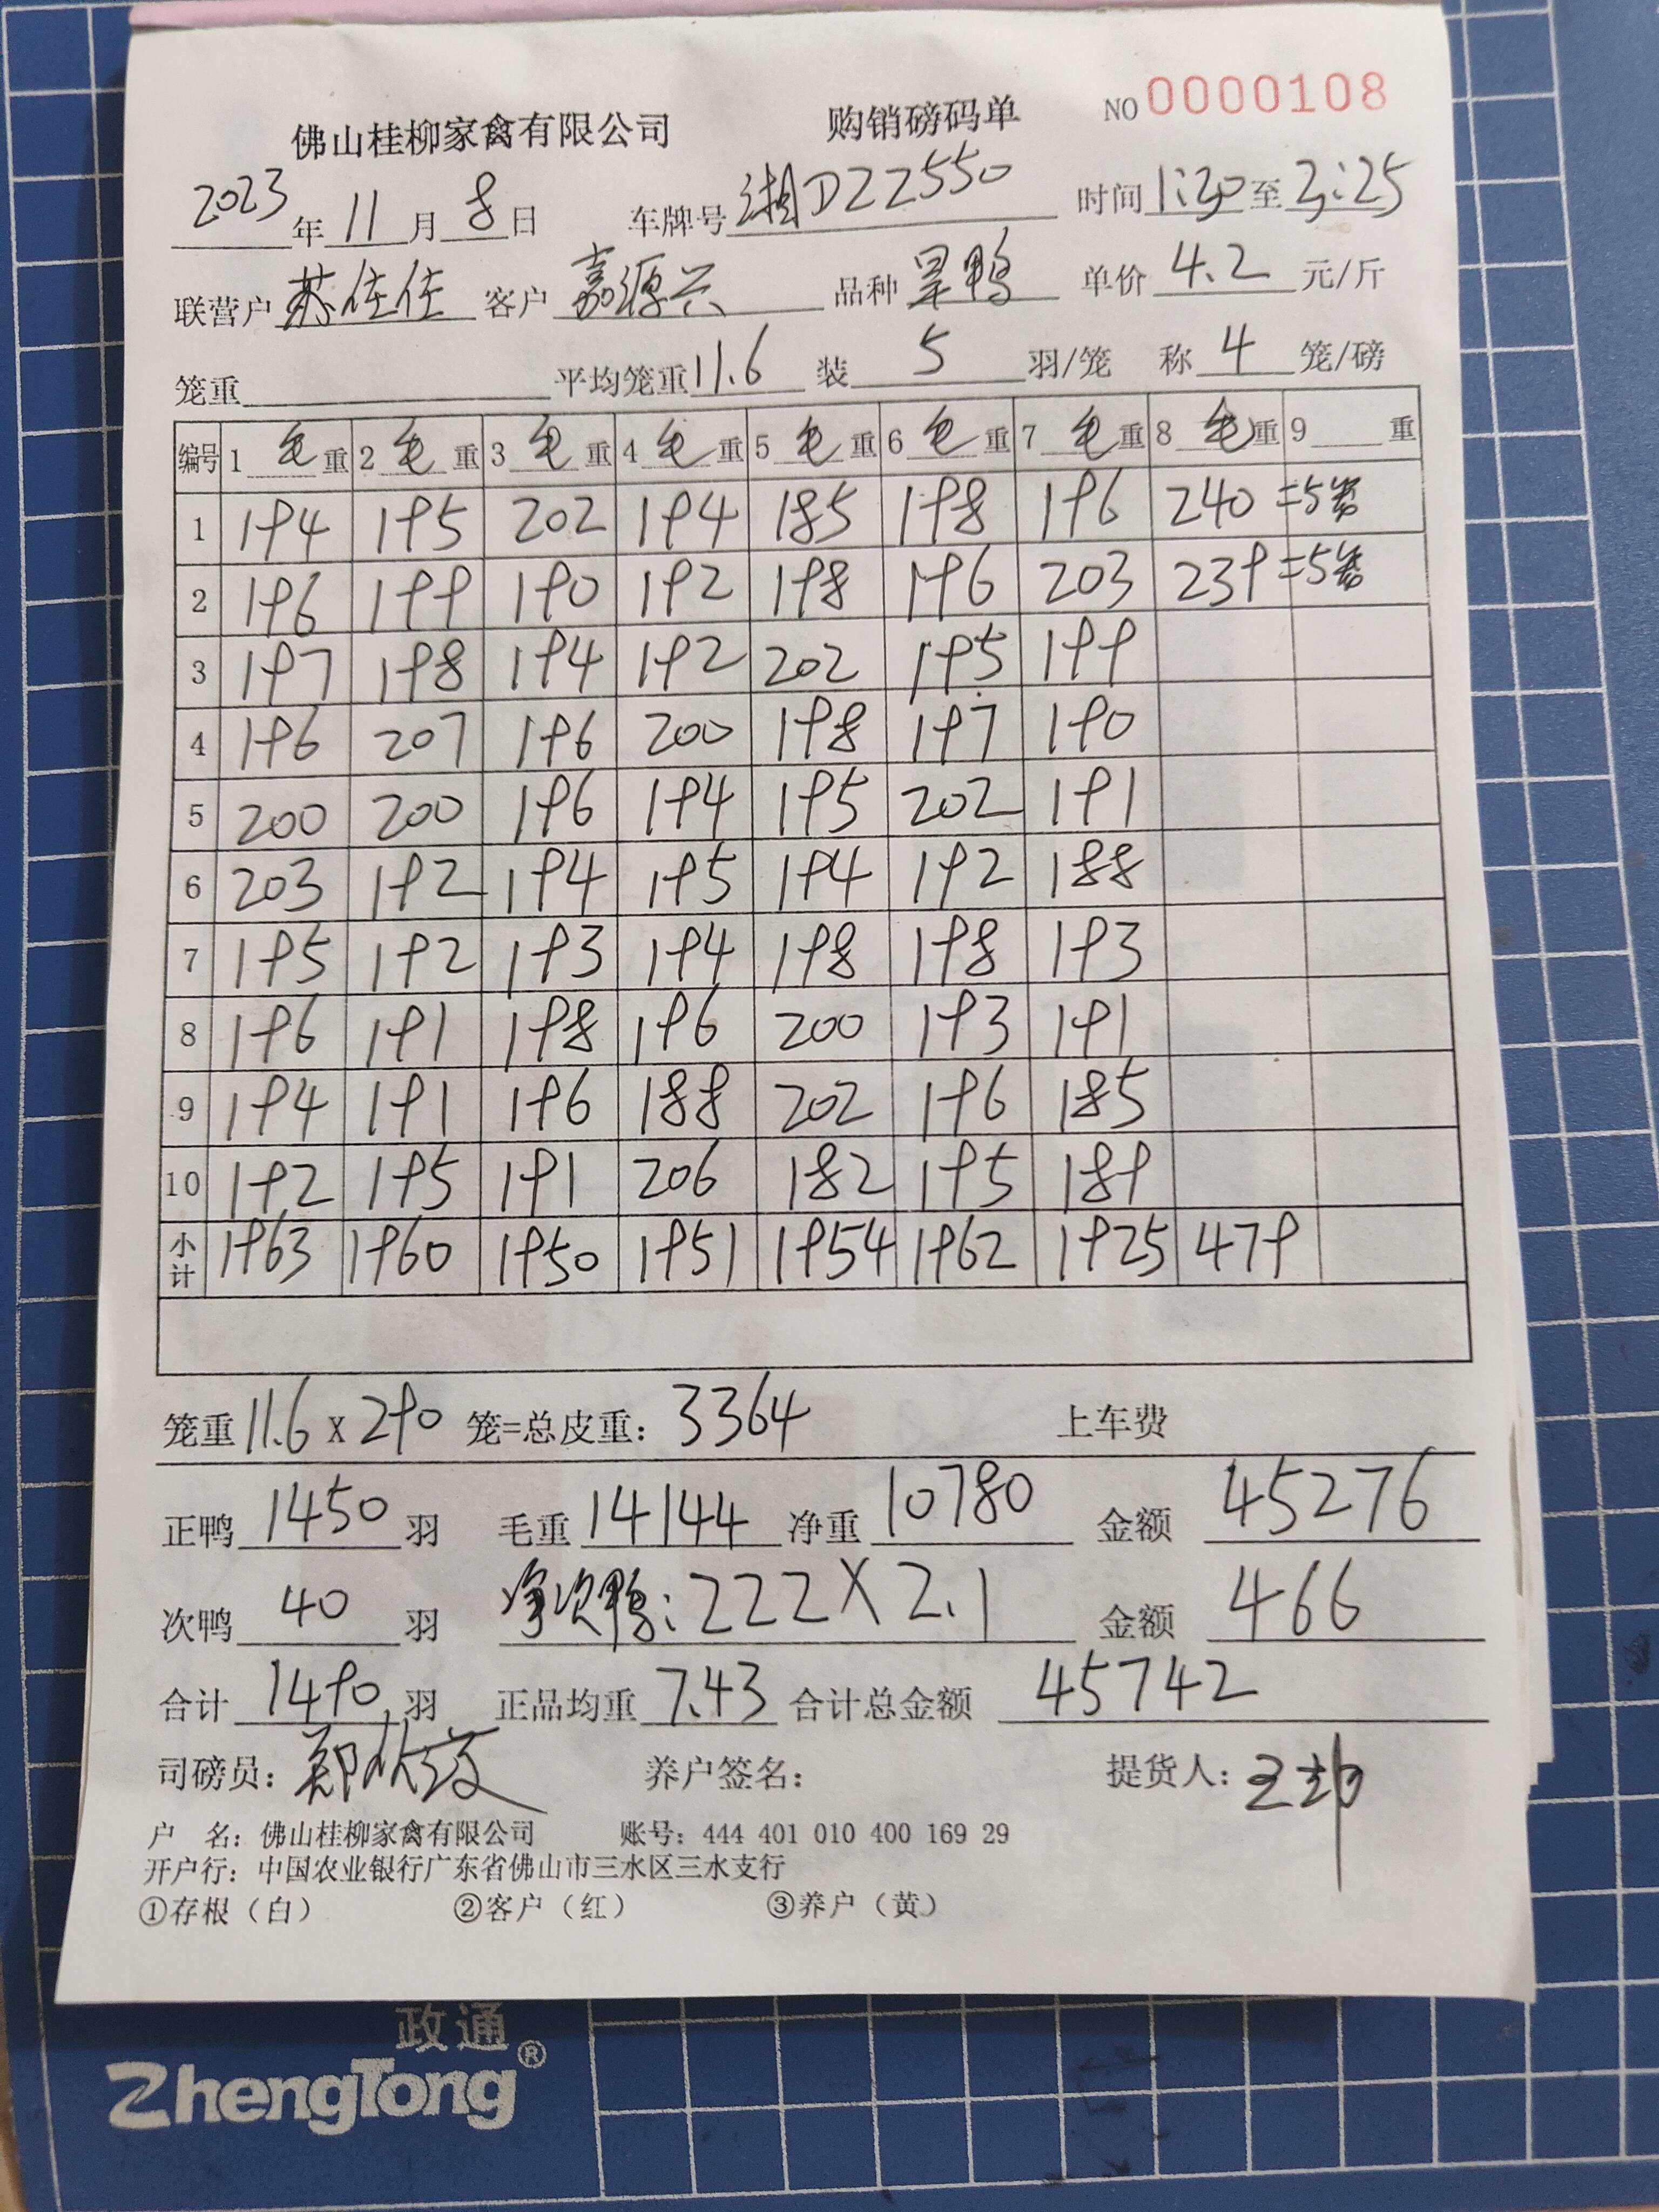 佛山桂柳家禽有限公司 购销磅码单 NO 0000108
2023年11月8日 车牌号 湘DZZ550 时间 1:30至3:25
联营户 苏佳佳 客户 嘉源兴 品种 旱鸭 单价 4.2 元/斤
笼重 平均笼重 11.6 装 5 羽/笼 称 4 笼/磅
编号 1 毛重 2 毛重 3 毛重 4 毛重 5 毛重 6 毛重 7 毛重 8 毛重 9 重
1 194 195 202 194 185 198 196 240 =5
2 196 199 190 192 198 196 203 239 =5
3 197 198 194 192 202 195 199
4 196 207 196 200 198 197 190
5 200 200 196 194 195 202 191
6 203 192 194 195 194 192 188
7 195 192 193 194 198 198 193
8 196 191 198 196 200 193 191
9 194 191 196 188 202 196 185
10 192 195 191 206 182 195 189
小计 1963 1960 1950 1951 1954 1962 1925 479
笼重 11.6 x 290 笼=总皮重: 3364 上车费
正鸭 1450 羽 毛重 14144 净重 10780 金额 45276
次鸭 40 羽 净次鸭: 222 X 2.1 金额 466
合计 1490 羽 正品均重 7.43 合计总金额 45742
司磅员: 养户签名: 提货人:
户 名: 佛山桂柳家禽有限公司 账号: 444 401 010 400 169 29
开户行: 中国农业银行广东省佛山市三水区三水支行
①存根（白） ②客户（红） ③养户（黄）
政通
ZhengTong®